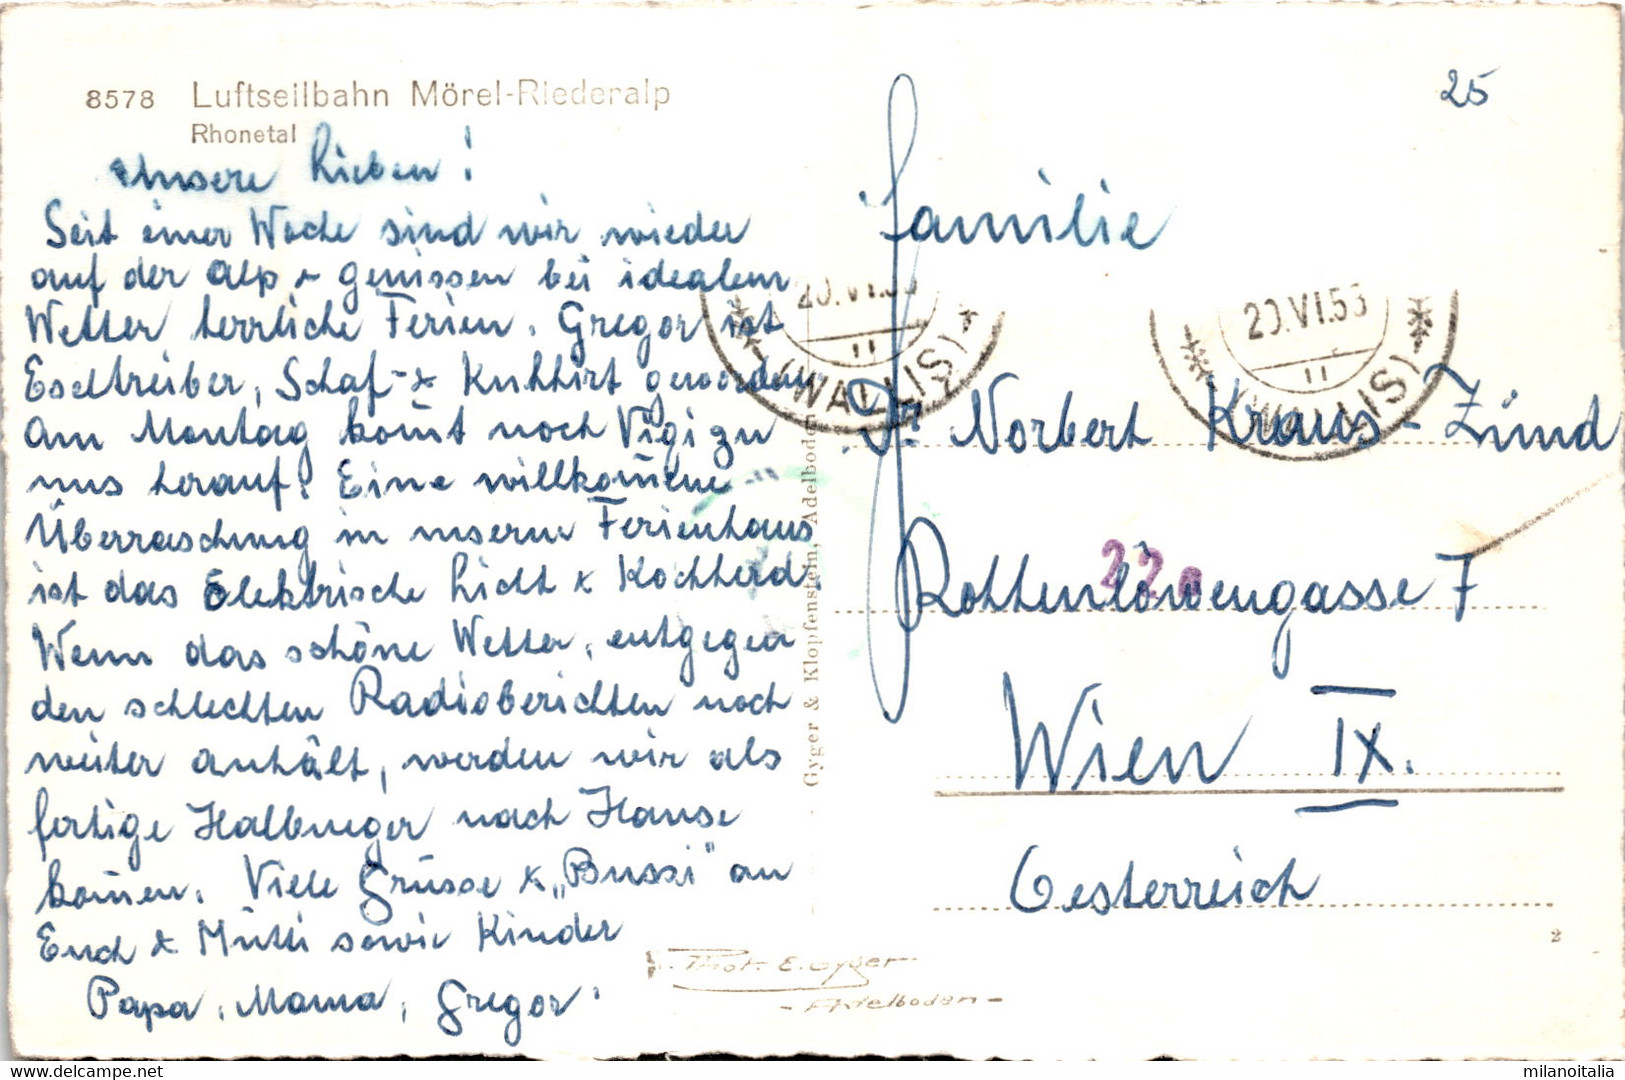 8578 Luftseilbahn Mörel-Riederalp
Rhonetal
Unsere Lieben!
Seit einer Woche sind wir wieder
auf der Alp & geniessen bei idealem
Wetter herrliche Ferien. Gregor ist
Eseltreiber, Schaf- & Kuhhirt geworden
Am Montag kom̄t noch Vigi zu
uns herauf! Eine willkom̄ene
Überraschung in unserm Ferienhaus
ist das Elektrische Licht & Kochherd.
Wenn das schöne Wetter, entgegen
den schlechten Radioberichten noch
weiter anhält, werden wir als
fertige Halbneger nach Hause
kom̄en. Viele Grüsse & „Bussi" an
Euch & Mutti sowie Kinder
Papa, Mama, Gregor.
25
Familie
20.VI.53
(WALLIS)
20.VI.53
(WALLIS)
Dr. Norbert Kraus-Zünd
22a
Rottenlöwengasse 7
Wien IX.
Oesterreich
Gyger & Klopfenstein, Adelboden
Phot. E. Gyger
- Adelboden -
delcampe.net
milanoitalia